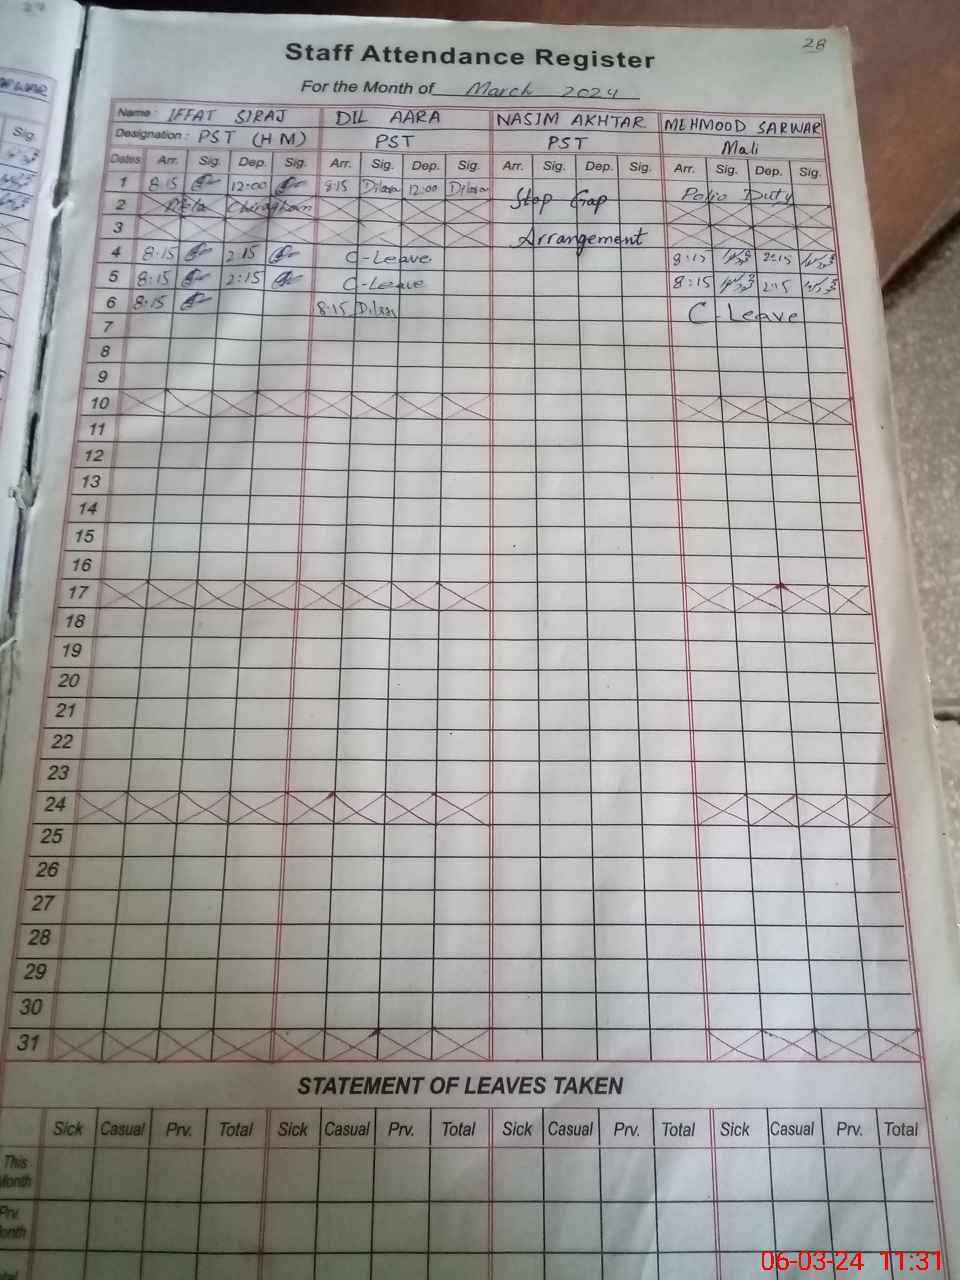 28
Staff Attendance Register
For the Month of March 2024
Name : IFFAT SIRAJ DIL AARA NASIM AKHTAR MEHMOOD SARWAR
Designation : PST (HM) PST PST Mali
Dates Arr. Sig. Dep. Sig. Arr. Sig. Dep. Sig. Arr. Sig. Dep. Sig. Arr. Sig. Dep. Sig.
1 8:15 12:00 8:15 Dilara 12:00 Dilara Stop Gap Polio Duty
2 Mela Chiraghan
3 Arrangement
4 8:15 2:15 C-Leave 8:15 2:15
5 8:15 2:15 C-Leave 8:15 2:15
6 8:15 8:15 Dilara C-Leave
7
8
9
10
11
12
13
14
15
16
17
18
19
20
21
22
23
24
25
26
27
28
29
30
31
STATEMENT OF LEAVES TAKEN
Sick Casual Prv. Total Sick Casual Prv. Total Sick Casual Prv. Total Sick Casual Prv. Total
This
Month
Prv.
Month
06-03-24 11:31